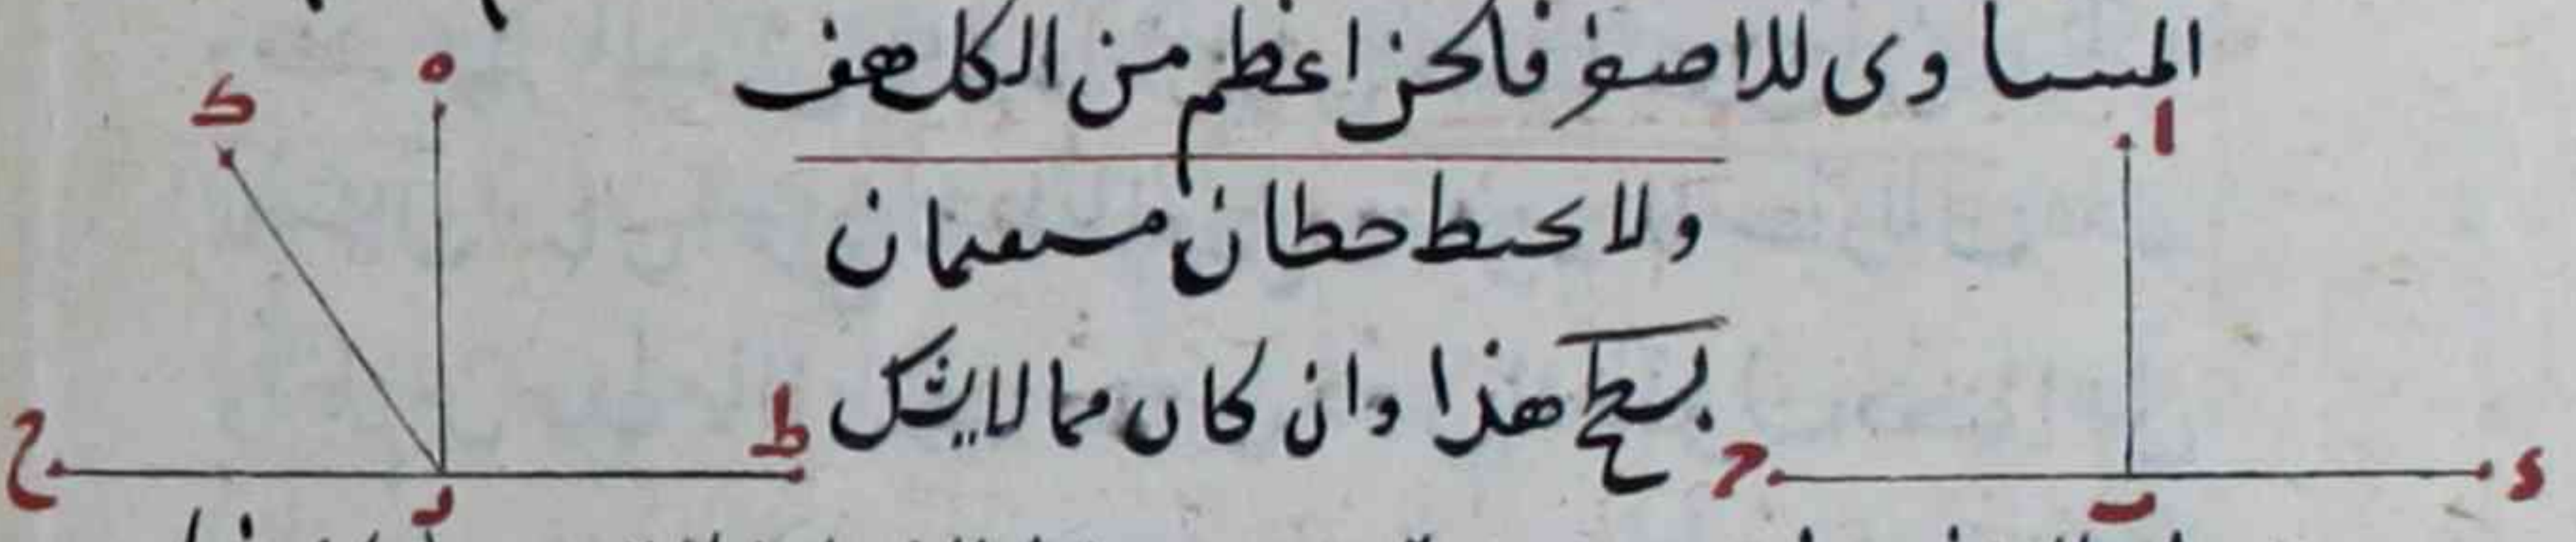 المساوى للاصغر فالجزء اعظم من الكل هف
ولا يحيط خطان مستقيمان
بسطح هذا وان كان مما لا يشكل
ا
ب
ج
د
ه
ك
ح
ر
ط